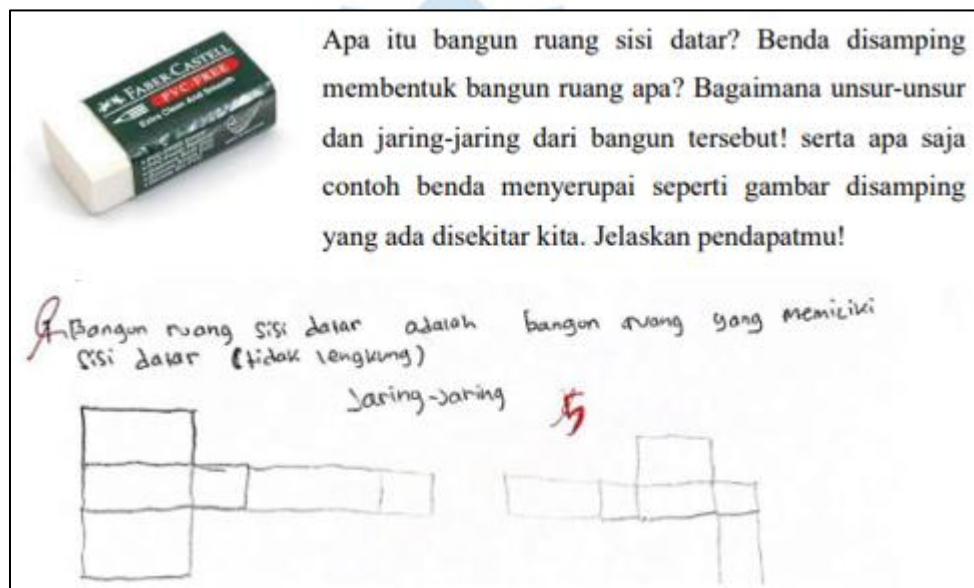 FABER-CASTELL
PVC-FREE
Apa itu bangun ruang sisi datar? Benda disamping
membentuk bangun ruang apa? Bagaimana unsur-unsur
dan jaring-jaring dari bangun tersebut! serta apa saja
contoh benda menyerupai seperti gambar disamping
yang ada disekitar kita. Jelaskan pendapatmu!
Bangun ruang sisi datar adalah bangun ruang yang memiliki
sisi datar (tidak lengkung)
Jaring-Jaring
5